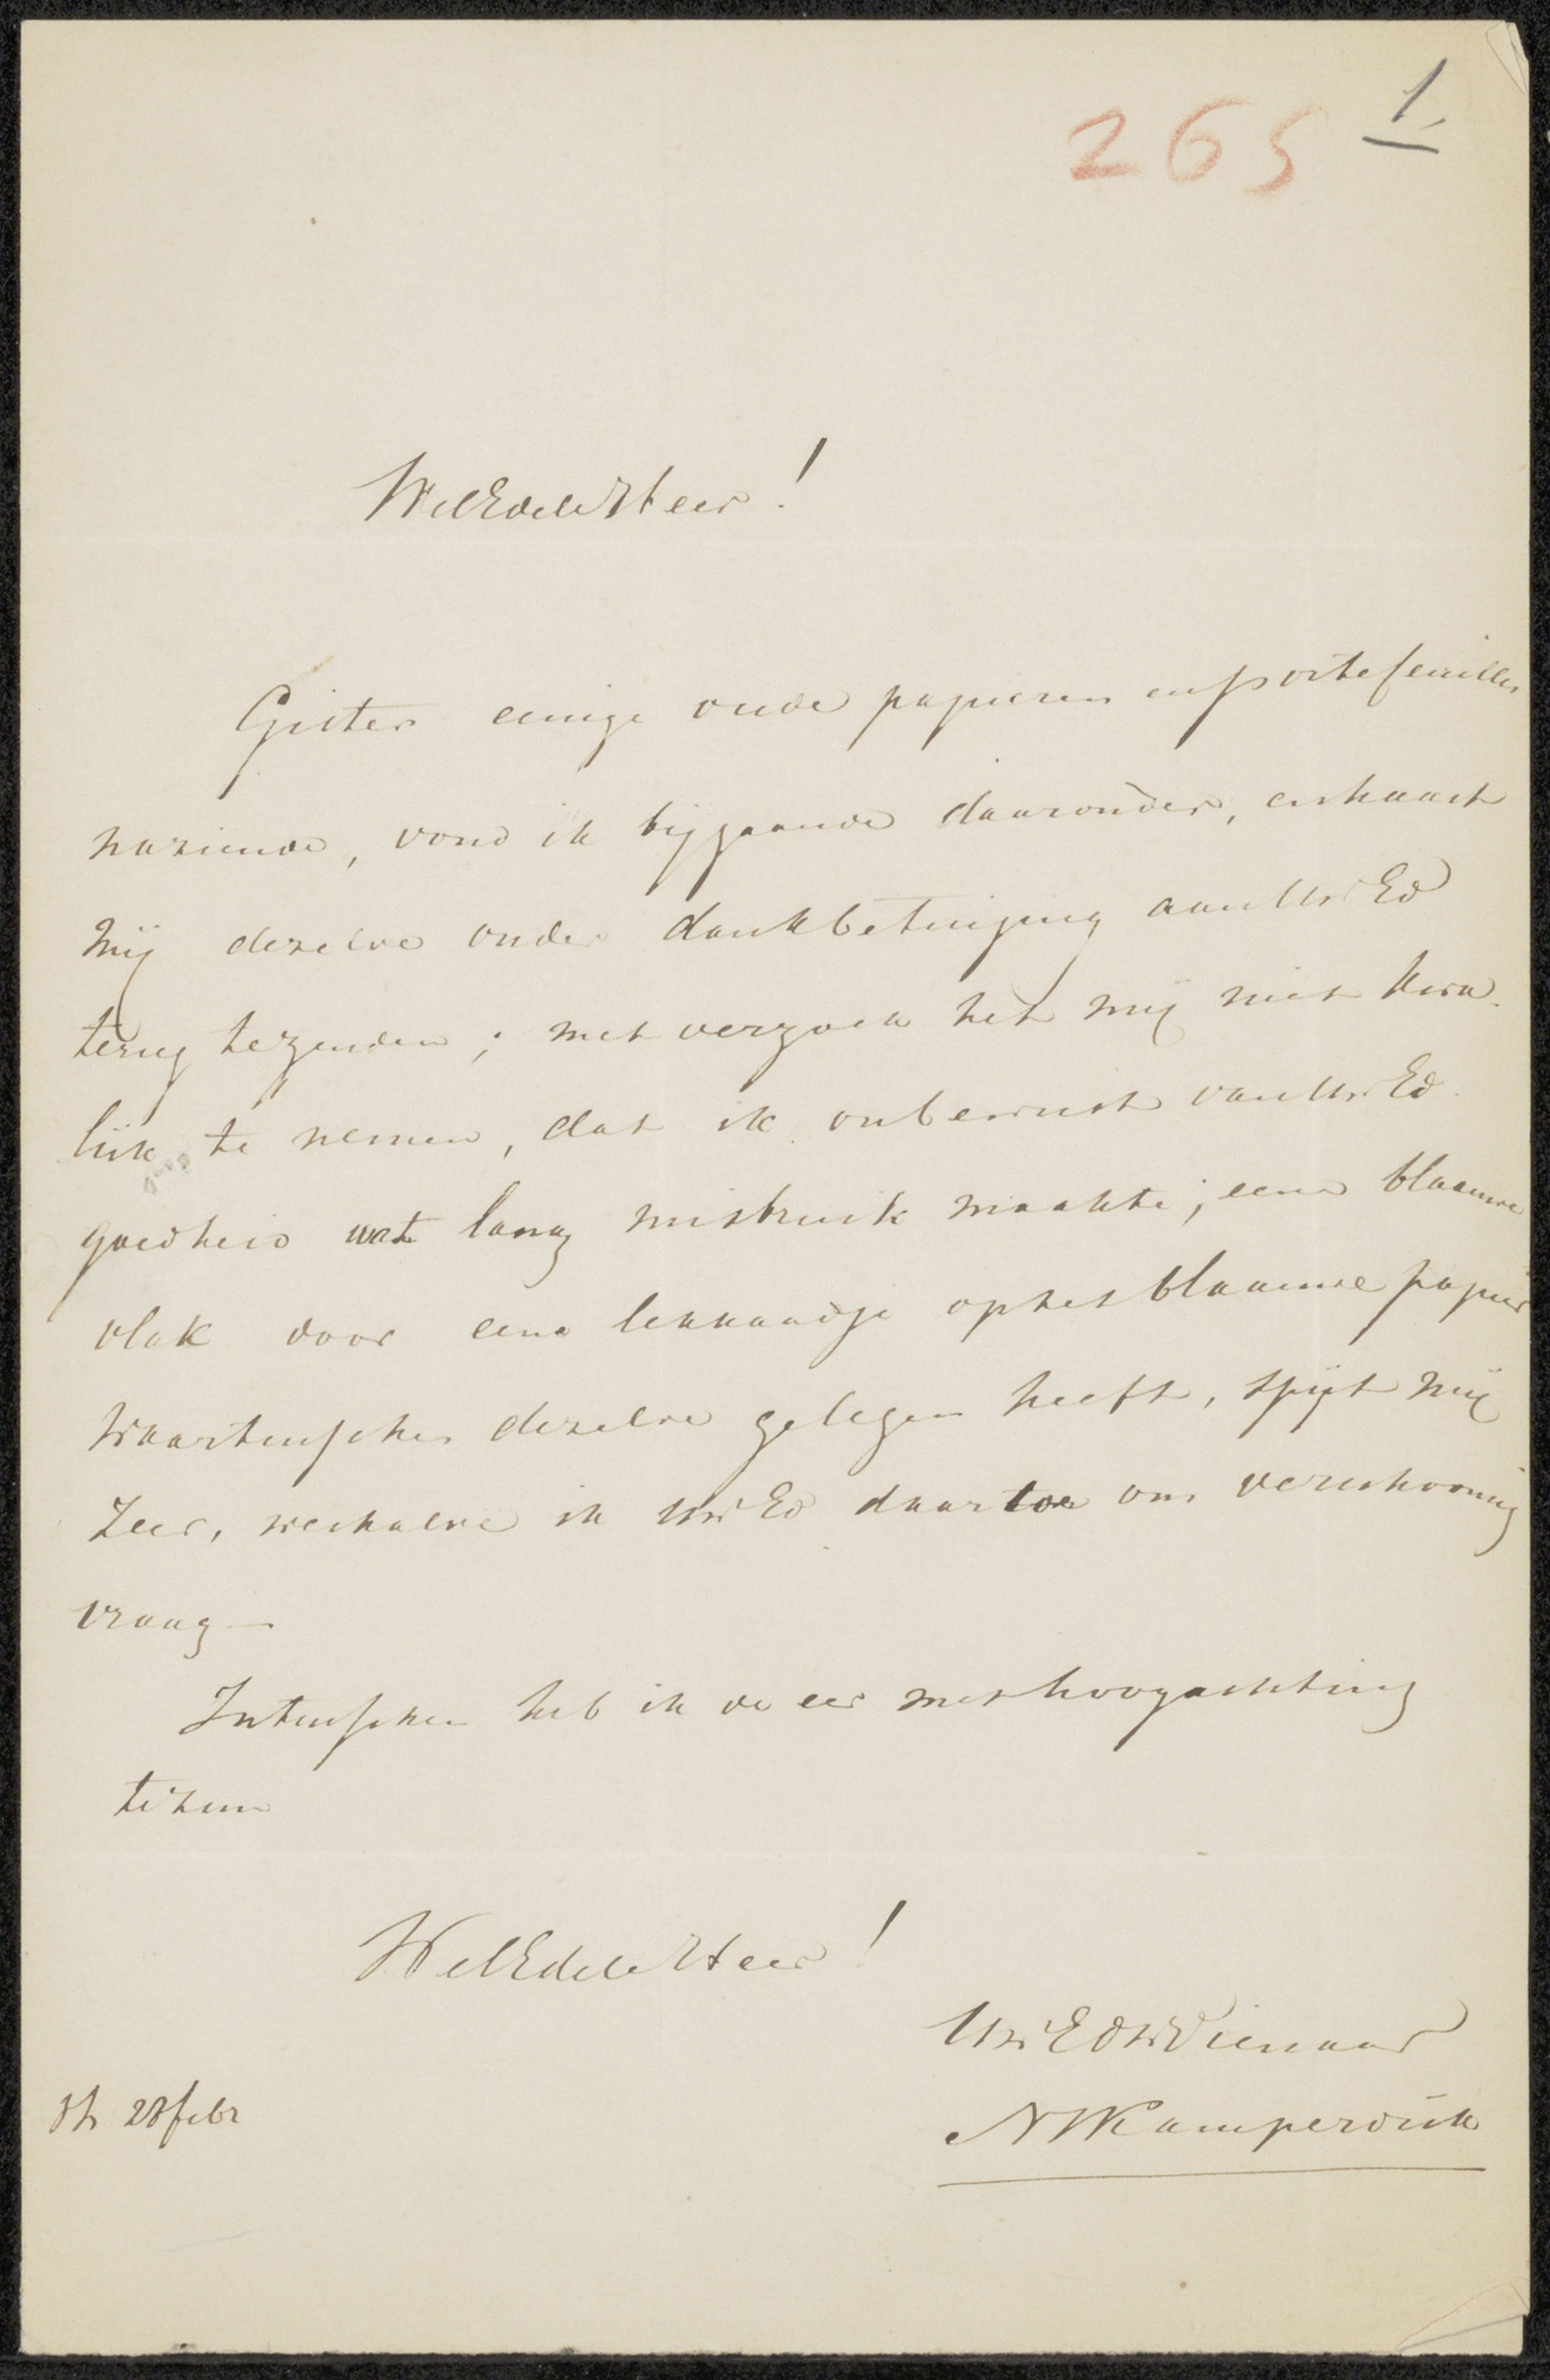 265 1
WelEdele Heer!
Gister eenige oude papieren en portefeuilles
naziende, vond ik bijgaande daaronder, en haast
mij dezelve onder dankbetuiging aan UwEd
terug te zenden; met verzoek het mij niet kwa-
lijk te nemen, dat ik onbewust van UwEd.
goedheid wat lang misbruik maakte; eene blaauwe
vlak door eene lekkaadje op het blaauwe papier
waartusschen dezelve gelegen heeft, spijt mij
zeer, weshalve ik UwEd daartoe om verschooning
vraag
Intusschen heb ik de eer met hoogachting
te zijn
WelEdele Heer!
UwEdwDienaar
28 febr
NWKamperdijk